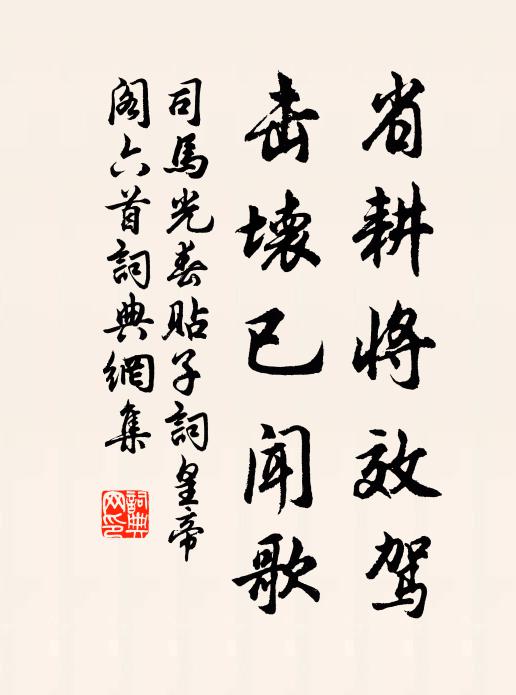 省耕将效駕
击壤已闻歌
司馬光春貼子詞皇帝
閣六首詞典網集
詞典网印